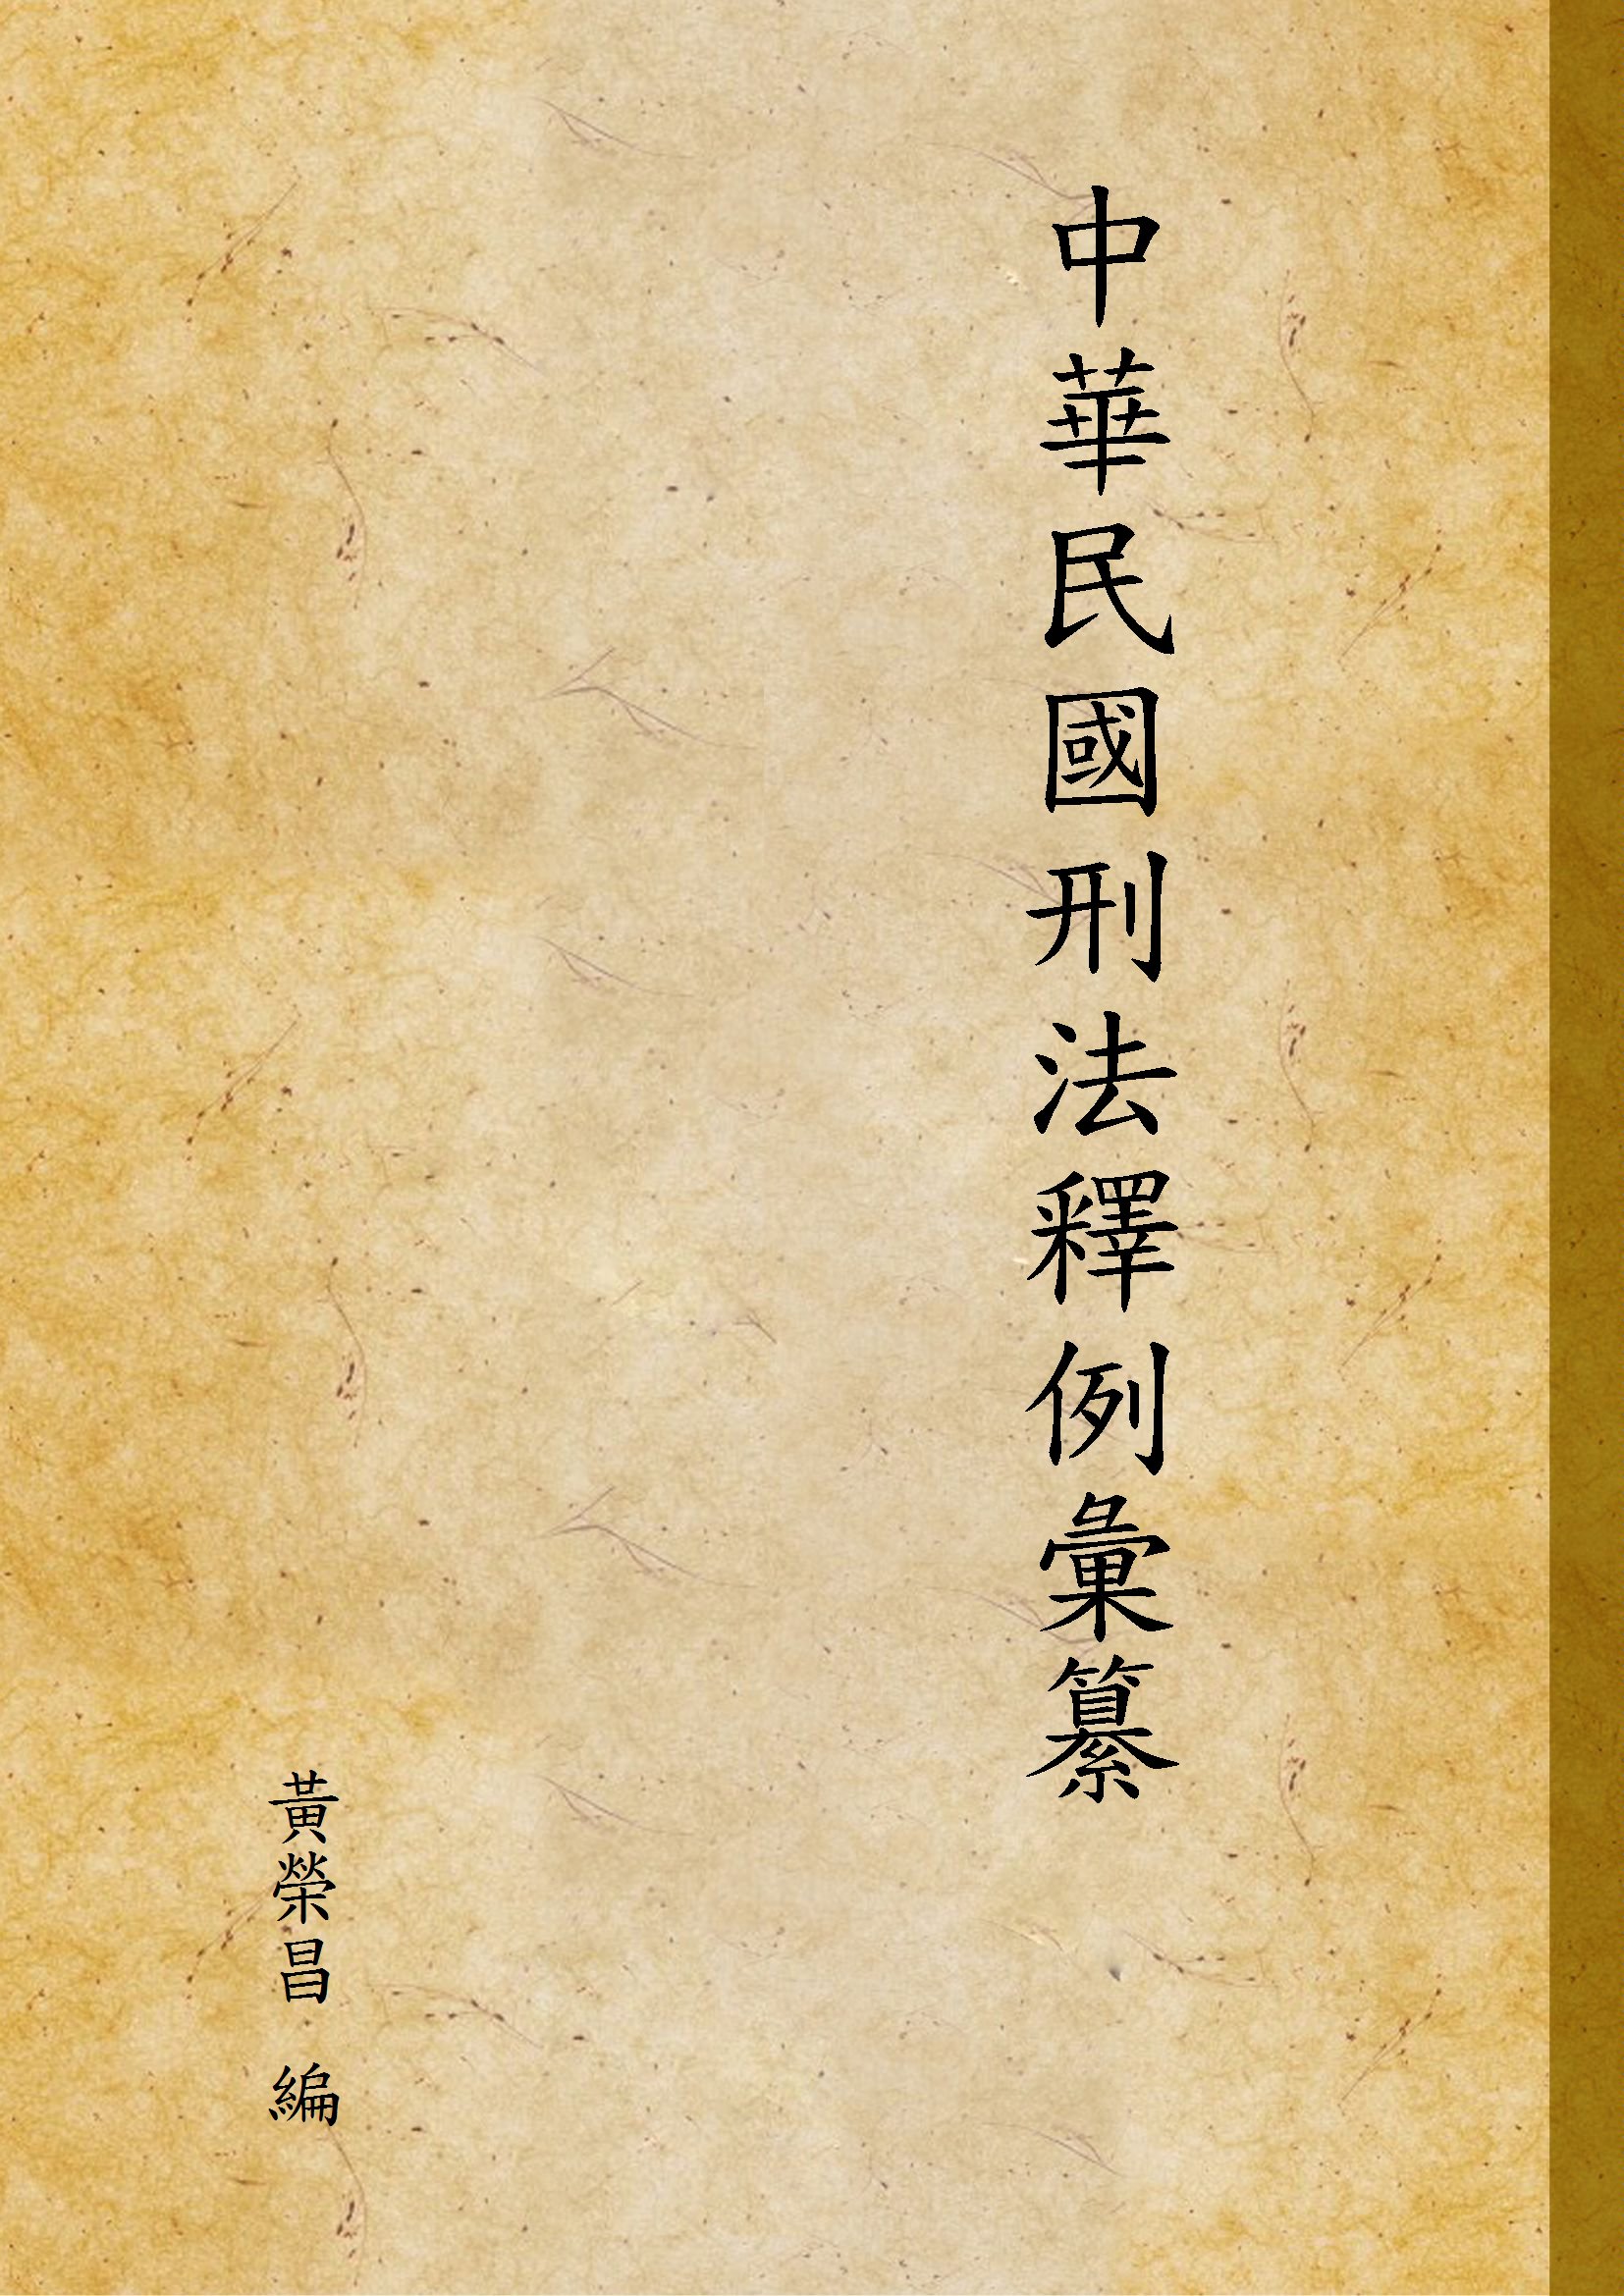 中華民國刑法釋例彙纂
黃榮昌 編